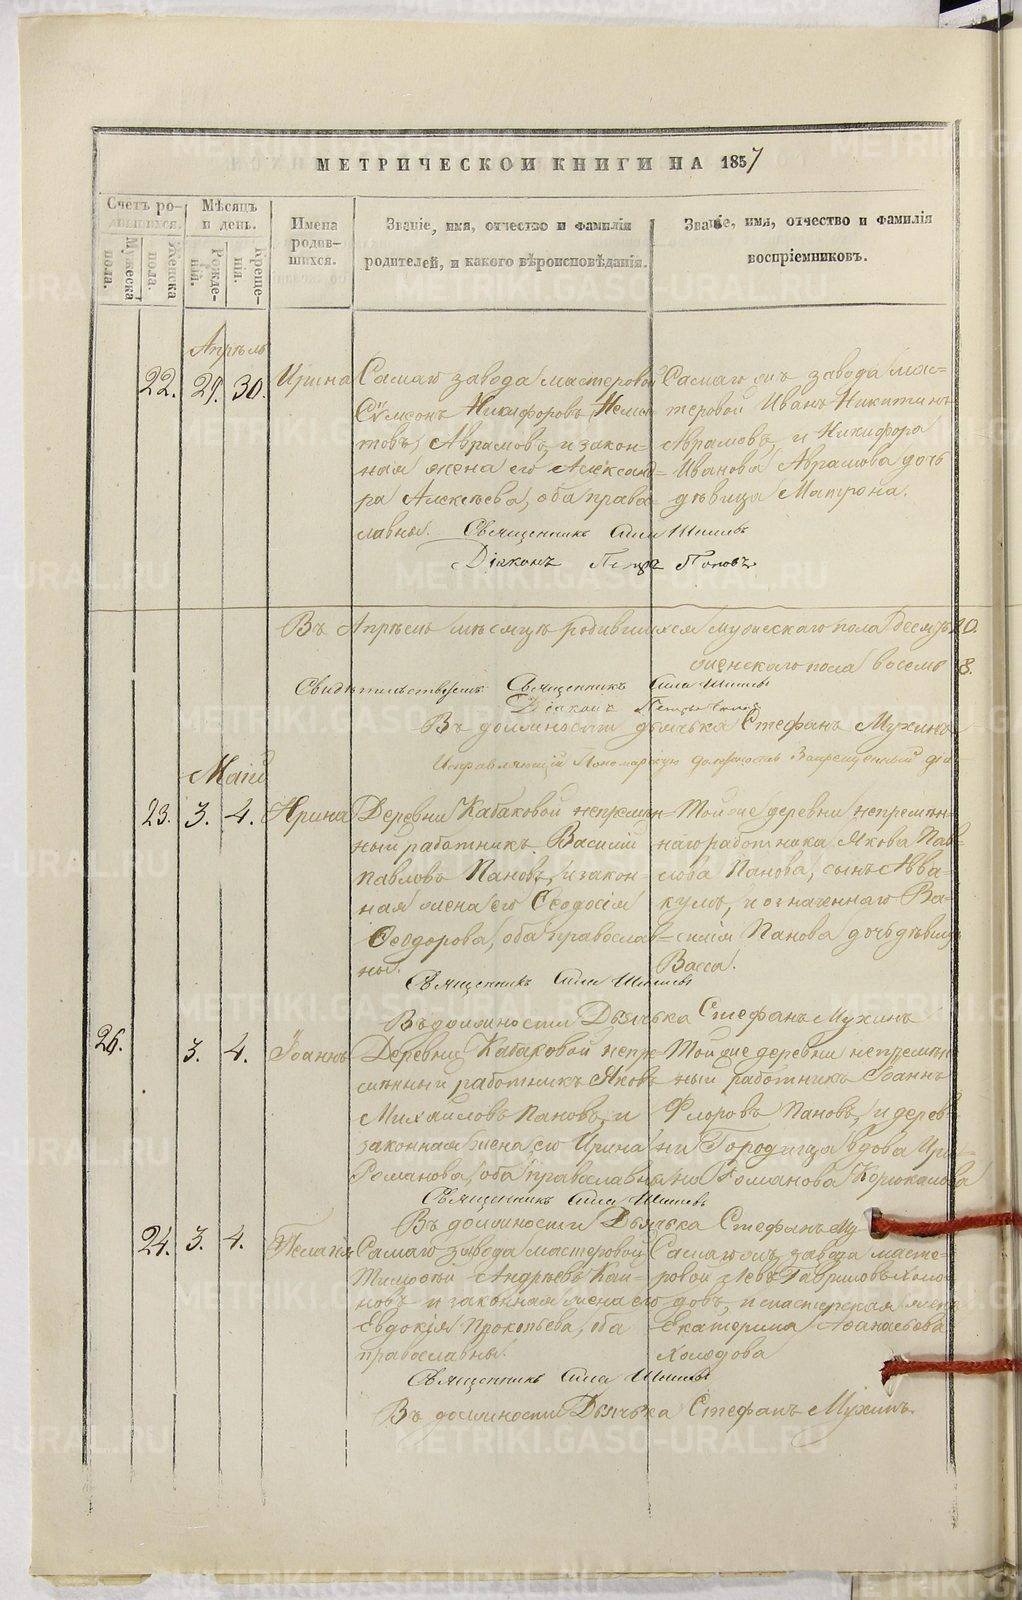 МЕТРИЧЕСКОЙ КНИГИ НА 1857
Счетъ ро-
дившихся.
Мужеска пола.
Женска пола.
Мѣсяцъ
и день.
Рожде-
нія.
Креще-
нія.
Имена
родив-
шихся.
Званіе, имя, отчество и фамилія
родителей, и какого вѣроисповѣданія.
Званіе, имя, отчество и фамилія
воспріемниковъ.
Апрѣль
22. 29. 30. Ирина
Самаго завода мастеровой
Сѵмеонъ Никифоровъ
Аврамовъ, и закон-
ная жена его Алексан-
ра Алексѣева, оба право
славны.
Самаго жъ завода мас-
теровой Иванъ Никитинъ
Аврамовъ, и Никифора
Иванова Аврамова дочь
дѣвица Матрона.
Священникъ Сила
Діаконъ Петръ Поповъ
Въ Апрѣлѣ мѣсяцѣ родившихся мужескаго пола десять 10.
женскаго пола восемь 8.
Свидѣтельствуемъ Священникъ Сила
Діаконъ Петръ Поповъ
Въ должности дьячька Стефанъ Мухинъ
Исправляющій Пономарскую должность Запрещенный діа-
Маій
23. 3. 4. Ирина
Деревни Кабаковой непремен-
ный работникъ Василій
павловъ Пановъ, и закон-
ная жена его Ѳеодосія
Ѳеодорова, оба православ-
ны.
Той же деревни непремѣн-
наго работника Якова Пав-
лова Панова, сынъ Авва-
кумъ, и означеннаго Ва-
силія Панова дочь дѣвица
Васса.
Священникъ Сила
Въ должности Дьячька Стефанъ Мухинъ
26. 3. 4. Іоаннъ
Деревни Кабаковой непре-
мѣнный работникъ Яковъ
Михайловъ Пановъ, и
законная жена его Ирина
Романова, оба православны
Той же деревни непремѣн
ный работникъ Іоаннъ
Флоровъ Пановъ, и дерев
ни Городища вдова Ири-
на Романова Корюкалова
Священникъ Сила
Въ должности Дьячька Стефанъ Му
24. 3. 4. Пелагія
Самаго завода мастеровой
Тимофей Андреевъ Каи-
новъ и законная жена его
Евдокія Прокопьева, оба
православны.
Самаго жъ завода масте-
ровой Левъ Гавриловъ Холо-
довъ, и мастерская жена
Екатерина Аѳанасьева
Холодова
Священникъ Сила
Въ должности Дьячька Стефанъ Мухинъ
METRIKI.GASO-URAL.RU